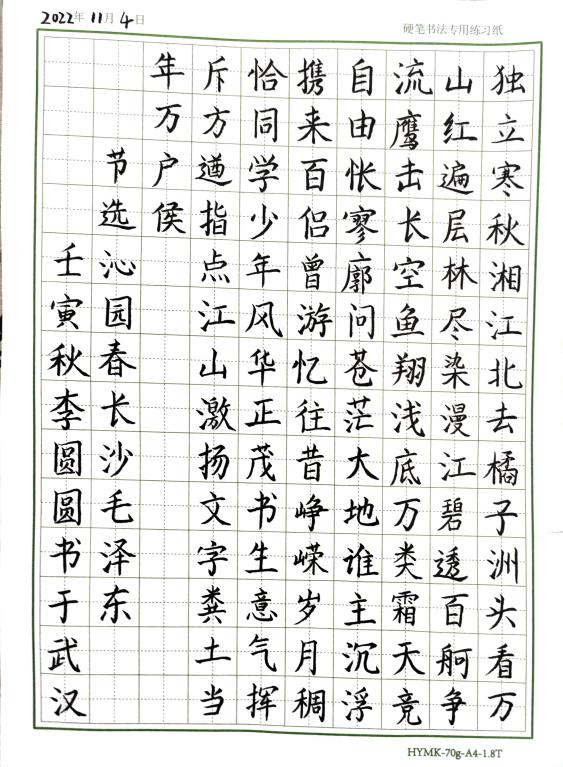 2022年11月4日
硬笔书法专用练习纸
独立寒秋湘江北去橘子洲头看万
山红遍层林尽染漫江碧透百舸争
流鹰击长空鱼翔浅底万类霜天竞
自由怅寥廓问苍茫大地谁主沉浮
携来百侣曾游忆往昔峥嵘岁月稠
恰同学少年风华正茂书生意气挥
斥方遒指点江山激扬文字粪土当
年万户侯
节选沁园春长沙毛泽东
壬寅秋李圆圆书于武汉
HYMK-70g-A4-1.8T